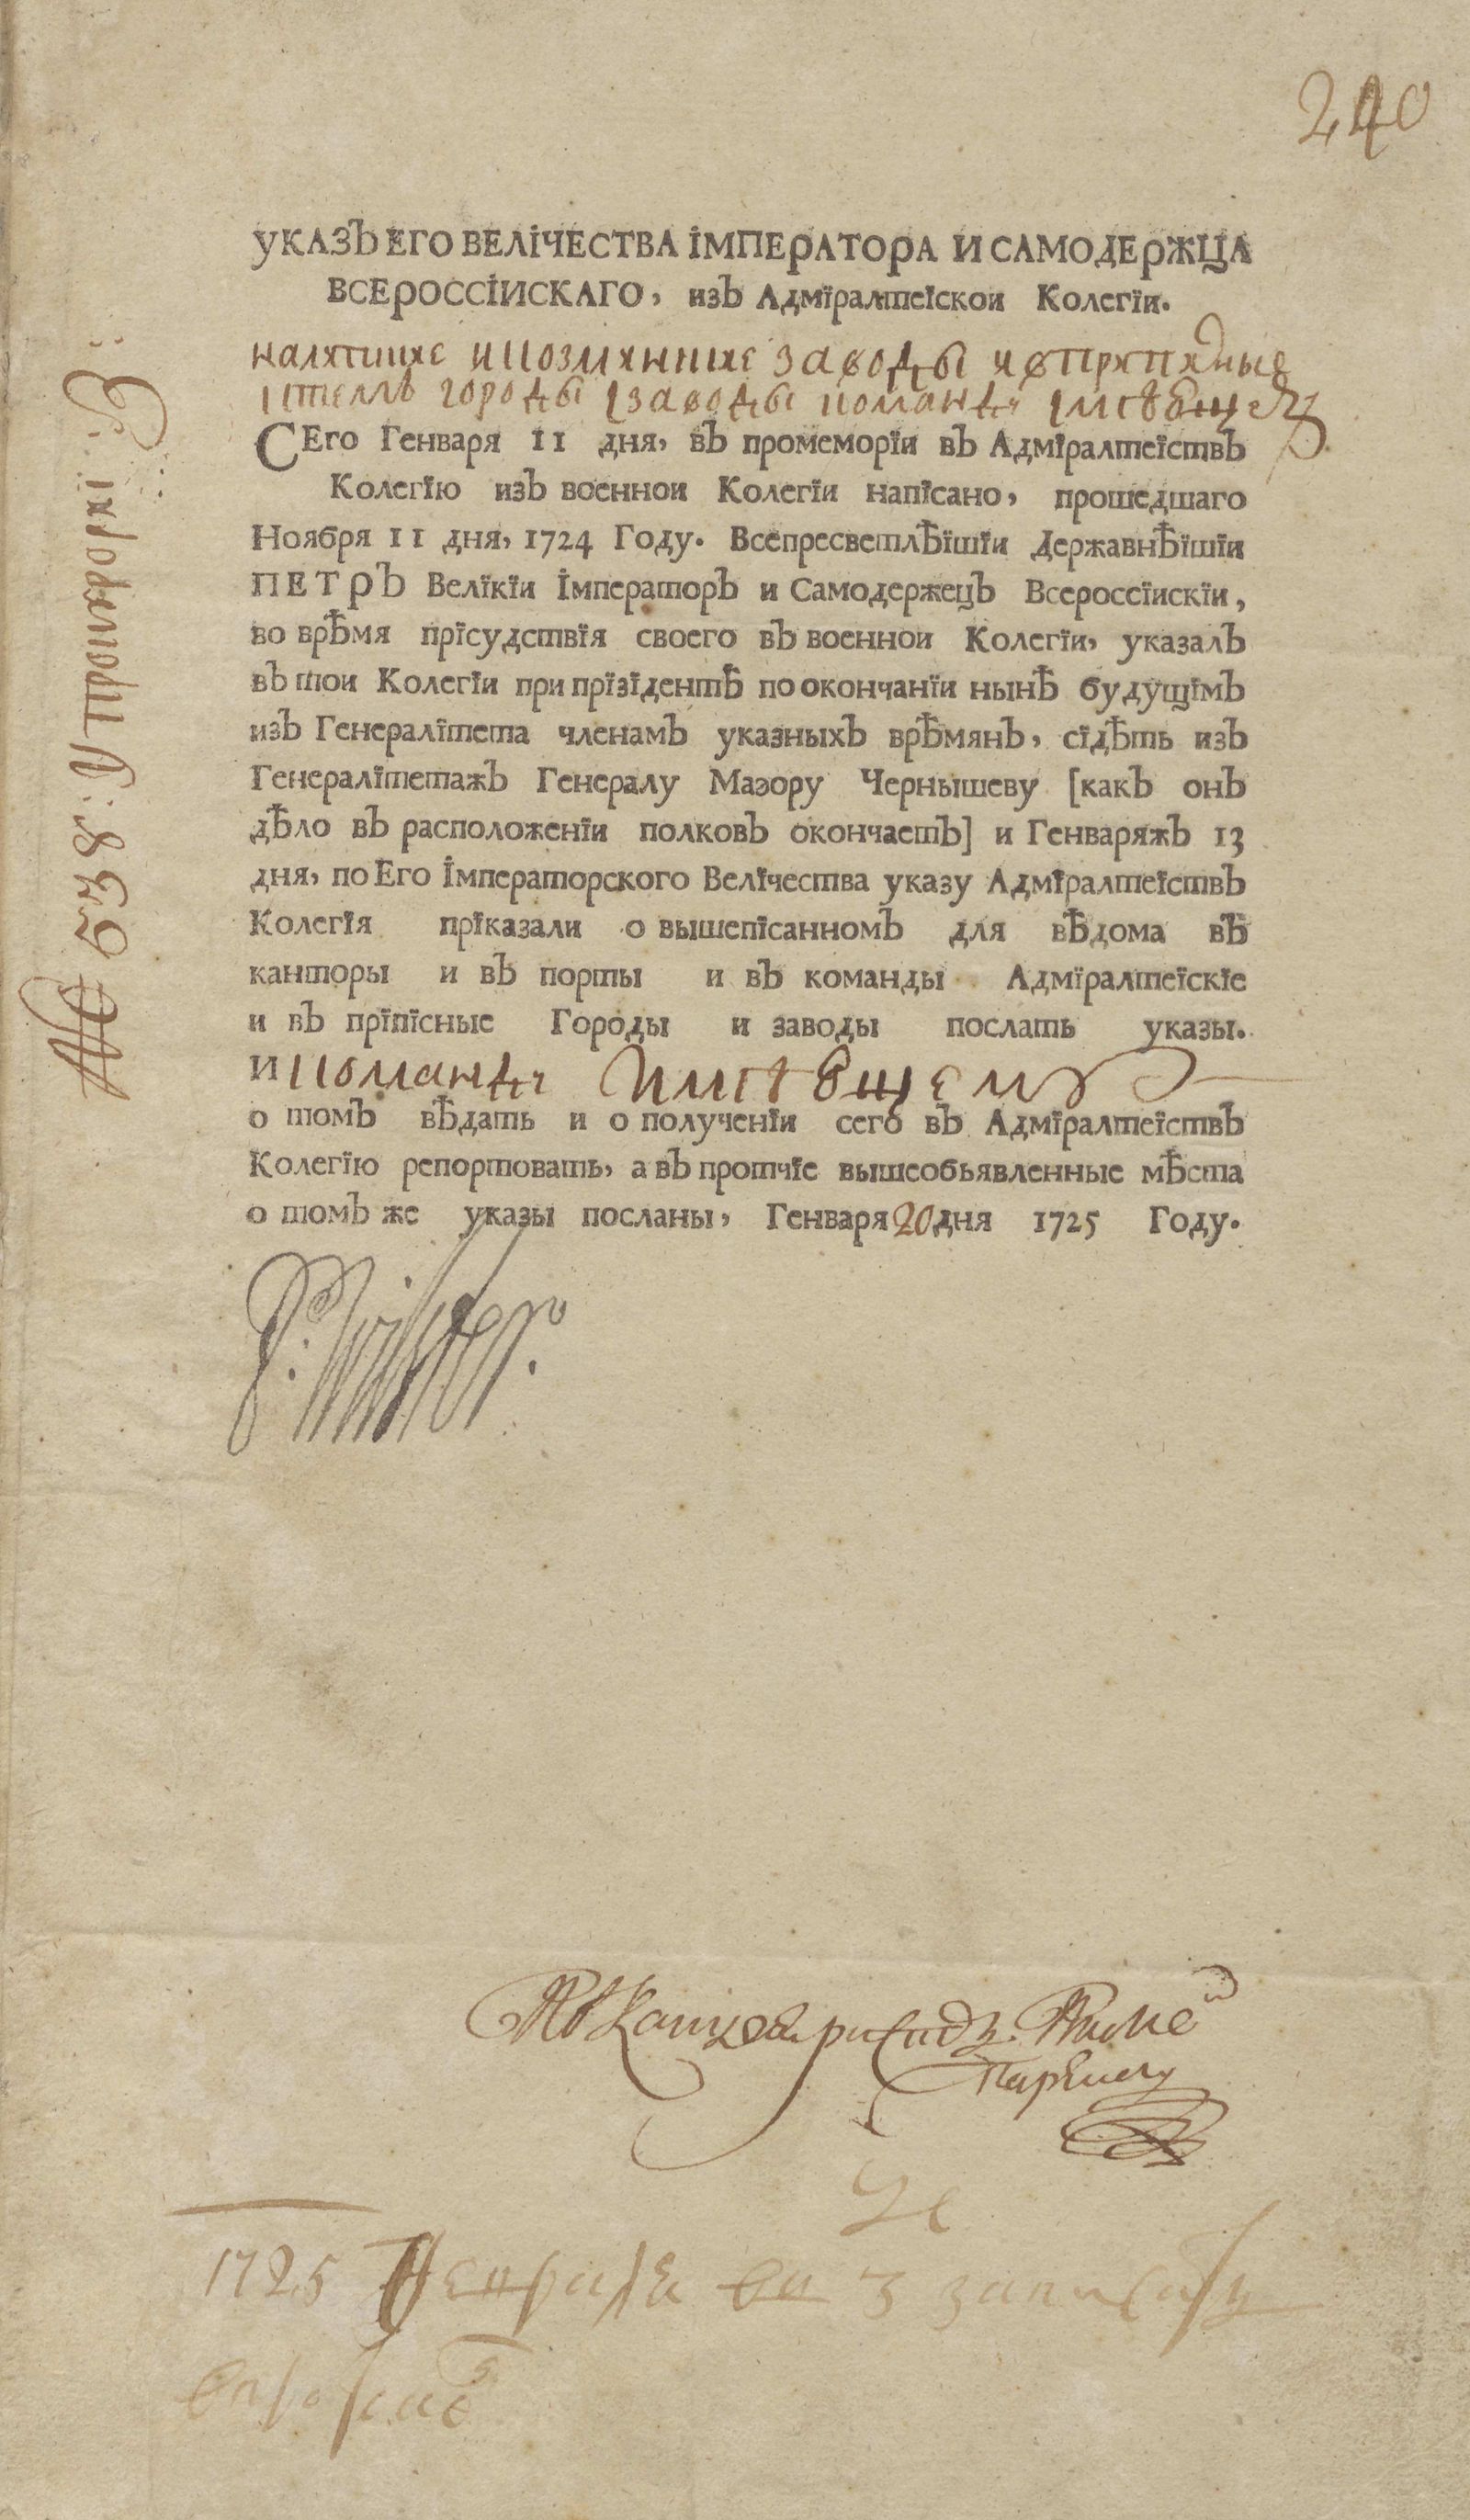 240
УКАЗЪ ЕГО ВЕЛІЧЕСТВА ІМПЕРАТОРА И САМОДЕРЖЦА
ВСЕРОССІИСКАГО, изЪ Адмїралтеїскои Колегїи.
заводы
городы заводы команду
СЕго Генваря 11 дня, вЪ промеморїи вЪ АдмїралтеїствЪ
Колегїю изЪ военнои Колегїи напїсано, прошедшаго
Ноября 11 дня, 1724 Году. ВсепресветлѢїшїи ДержавнѢїшїи
ПЕТРЪ Велїкїи ІмператорЪ и СамодержецЪ Всероссїискїи,
во врѢмя прїсудствїя своего вЪ военнои Колегїи, указалЪ
вЪ тои Колегїи при прїзїдентѢ по окончанїи нынѢ будущїмЪ
изЪ Генералїтета членамЪ указныхЪ врѢмянЪ, сїдѢть изЪ
ГенералїтетажЪ Генералу Маэору Чернышеву [какЪ онЪ
дѢло вЪ расположенїи полковЪ окончаетЪ] и ГенваряжЪ 13
дня, по Его Імператорского Велїчества указу АдмїралтеїствЪ
Колегїя прїказали о вышепїсанномЪ для вѢдома вЪ
канторы и вЪ порты и вЪ команды Адмїралтеїскїе
и вЪ прїпїсные Городы и заводы послать указы.
И команду имѣющему
о томЪ вѢдать и о полученїи сего вЪ АдмїралтеїствЪ
Колегїю репортовать, а вЪ протчїе вышеобьявленные мѢста
о томЪ же указы посланы, Генваря 20 дня 1725 Году.
638
1725 Февраля 3 записать